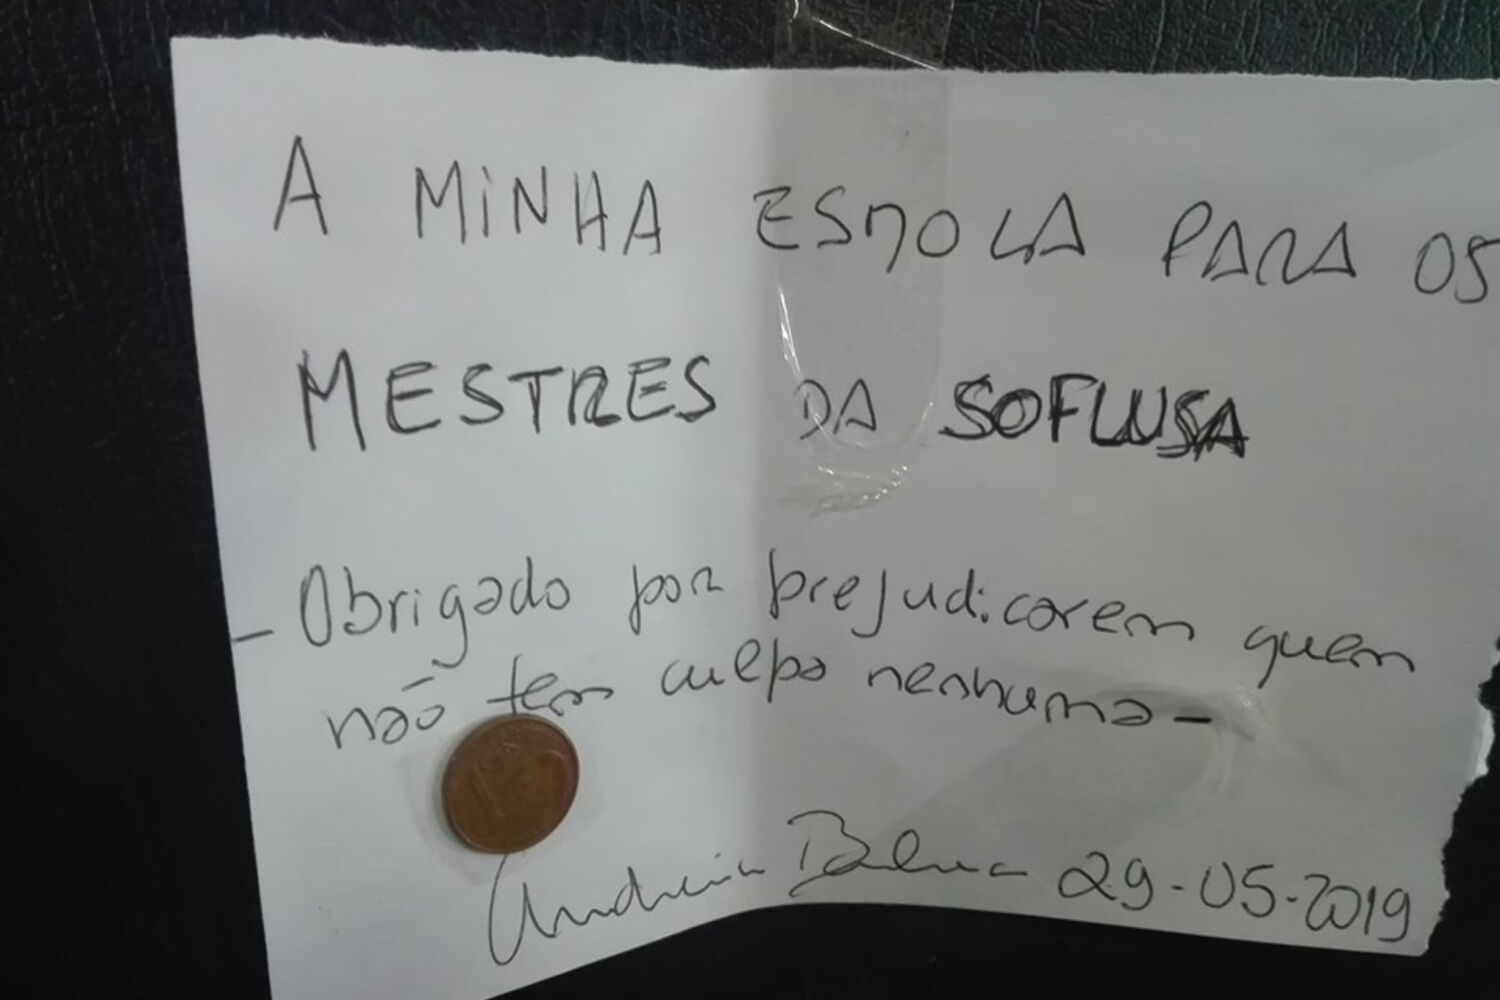 A MINHA ESMOLA PARA OS
MESTRES DA SOFLUSA
- Obrigado por prejudicarem quem
não tem culpa nenhuma -
Andreia 29-05-2019